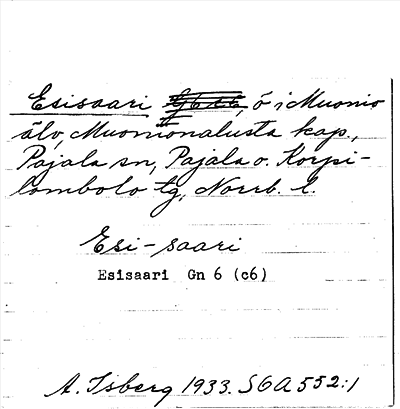 Esisaari ö i Muonio
älv, Muonionalusta kap.,
Pajala sn, Pajala o. Korpi-
lombolo tg, Norrb. l.
Esi-saari
Esisaari Gn 6 (c6)
A. Isberg 1933. SGA 552:1